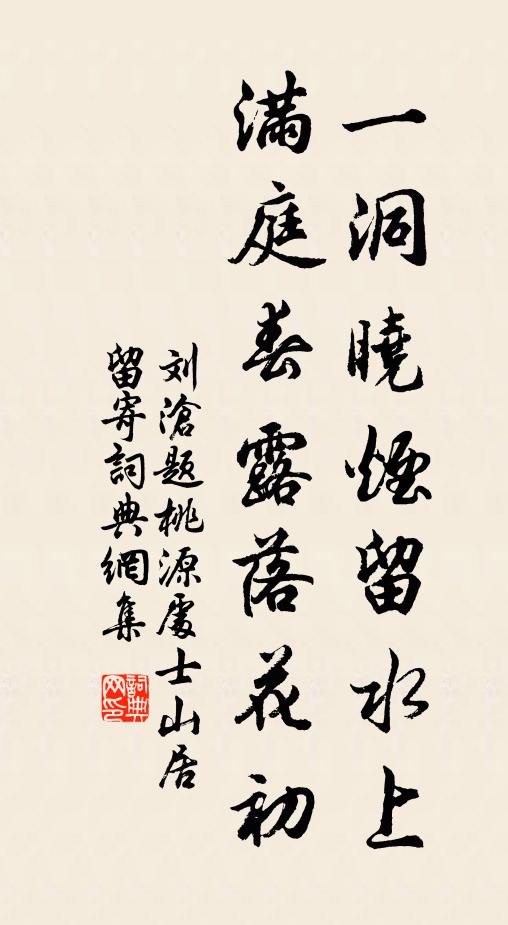 一洞曉煙留水上
滿庭春露落花初
刘滄题桃源處士山居
留寄詞典網集
詞典
网印